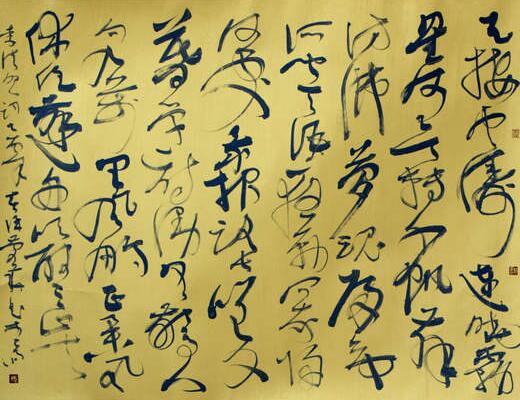 天接云濤連曉霧
星河欲轉千帆舞
彷彿夢魂歸帝
所聞天語殷勤問我歸
何處我報路長嗟日
暮學詩謾有驚人
句九萬里風鵬正舉風
休住蓬舟吹取三山去
李清照詞